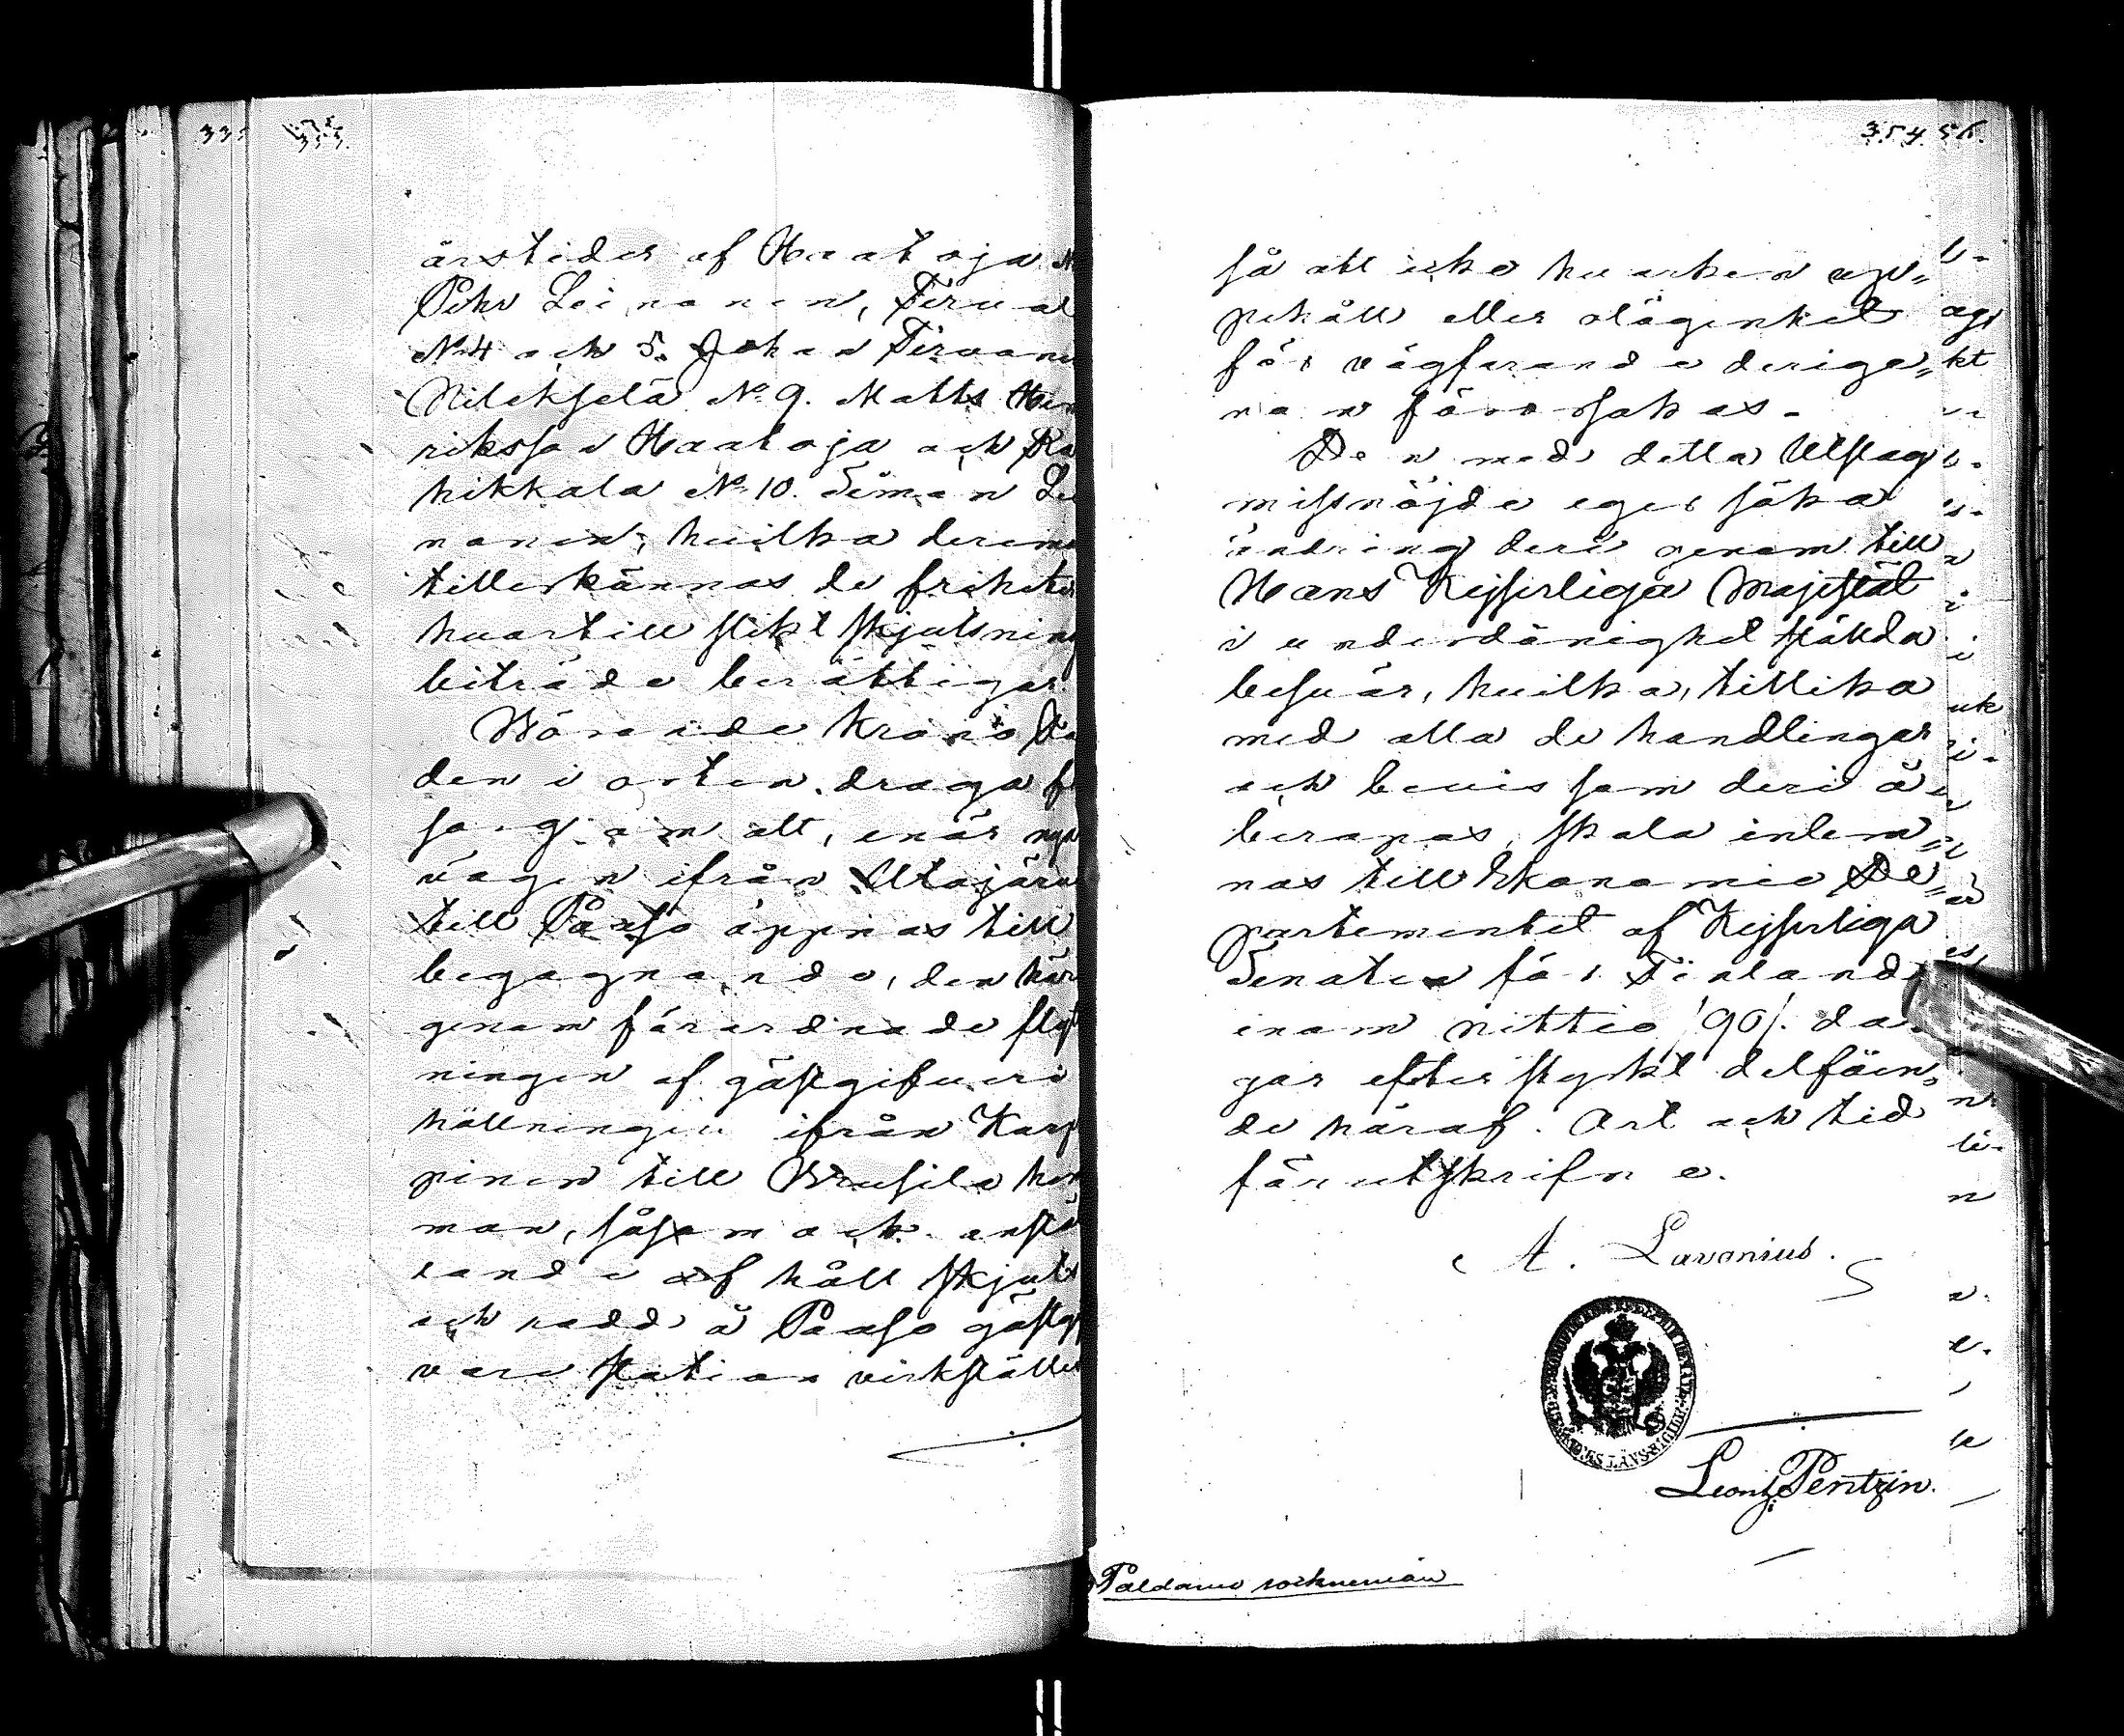 353.
årstider af Haatoja N
Pehr Leinonen, Tervol
No 4 och 5. Johan Tervone
Nilekselä No 9. Matts Hen
riksson Haatoja och Ra
hikkala No 10. Simon Lei
nonen, hvilka deremo
tillerkännas de friheter
hvartill slikt skjutsning
biträde berättigar.
den i orten draga f
sorg om att, enär nya
vägen ifrån Utajärv
till Paaso öppnas till
begagnande, den här
genom förordnade flyt
ningen af gästgifveri
hållningen ifrån Karp
pinen till Wrusila hem
man, såsom ock anstä
lande af håll skjuts
och redd å Paaso gästgif
veri station verkställes
354
så att icke hvarken up„
pehåll eller olägenhet
för vägfarande derige„
nom förorsakas.
Den med detta Utslag
missnöjde eger söka
ändring deri genom till
Hans Kejserliga Majestät
i underdånighet ställda
besvär, hvilka, tillika
med alla de handlingar
och bevis som deri å
beropas, skola inlem„
nas till Ekonomie De„
partementet af Kejserliga
Senaten för Finland
inom nittio /90/. da„
gar efter styrkt delfåen„
de häraf. Ort och tid
förutskrifne.
A. Lavonius.
Leontj: Pentzin.
Paldamo socknemän